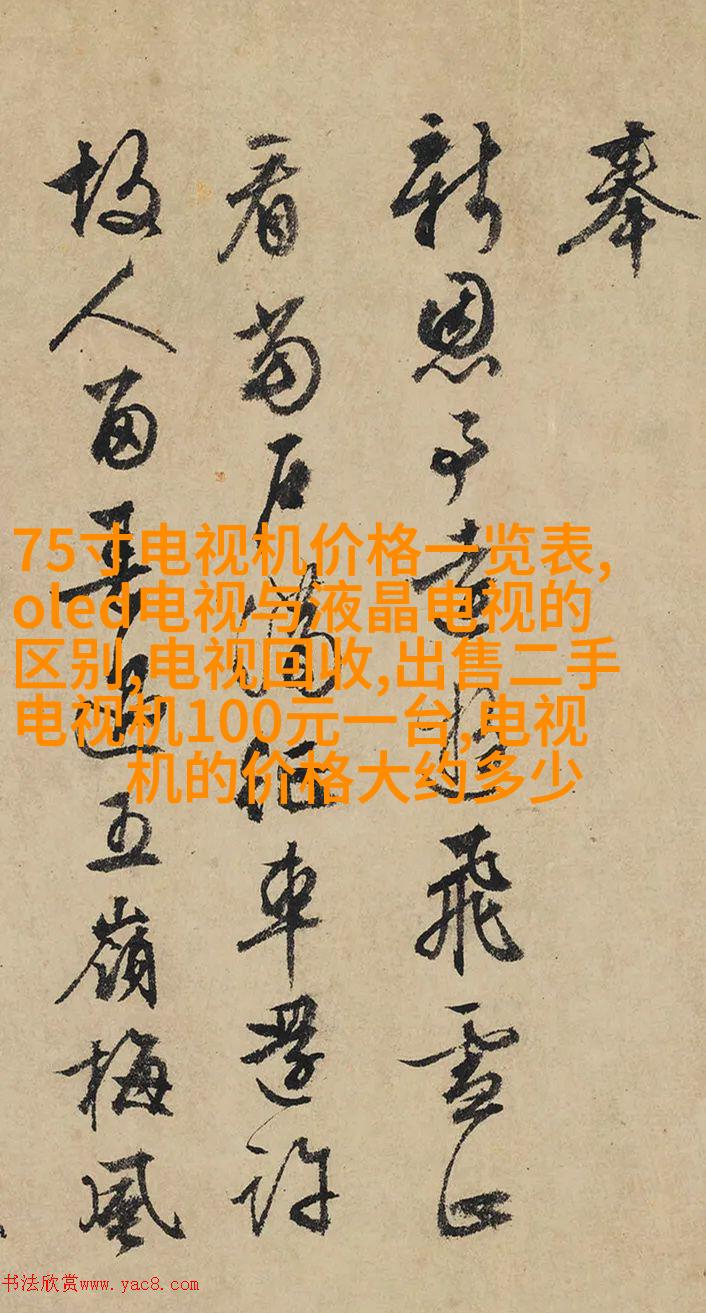 奉
新恩予遠遊飛雪正
看當滿征車還許
故人留過五嶺梅風
75寸电视机价格一览表,
oled电视与液晶电视的
区别,电视回收,出售二手
电视机100元一台,电视
机的价格大约多少
书法欣赏www.yac8.com